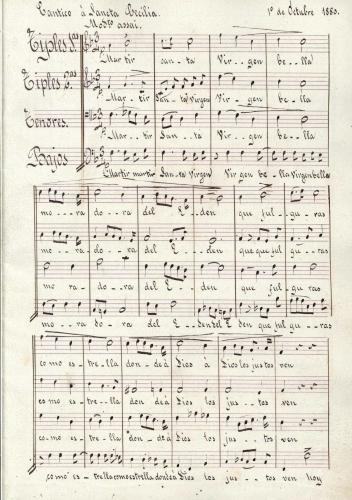 Cantico á Sancta Cecilia. 1º de Octubre 1880.
Modto assai.
Tiples 1os
Martir san-ta Vir-gen be-lla
Tiples 2os
Mar-tir San-ta Virgen Vir-gen be-lla
Tenores.
Mar-tir San-ta Vir-gen be-lla
Bajos
Martir martir San-ta Virgen Virgen be-lla Virgen bella
mo---ra do-ra del E--den que ful-gu-ras
mo-ra-do-ra del E--den que que ful-gu-ras
mo ra-do-ra del E--den que ful-gu-ras
mo---ra dora del E--den del E den que ful gu--ras
como es-tre-lla don-de á Dios á Dios los jus tos ven
co-mo es-tre-lla don-de á Dios los jus--tos ven
co-mo es-tre-lla don-de á Dios los jus--tos ven
como es-trella como estrella donde á Dios los jus--tos ven hoy